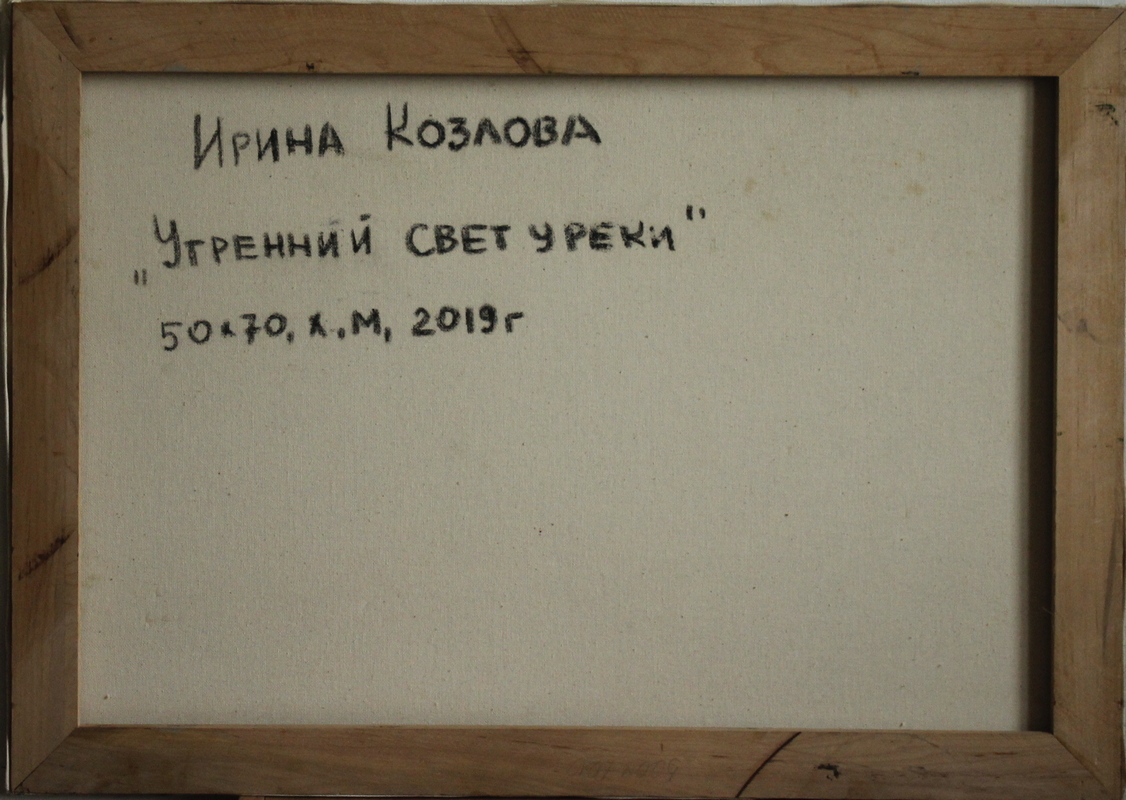 Ирина Козлова
„Утренний свет у реки"
50х70, х.м, 2019г